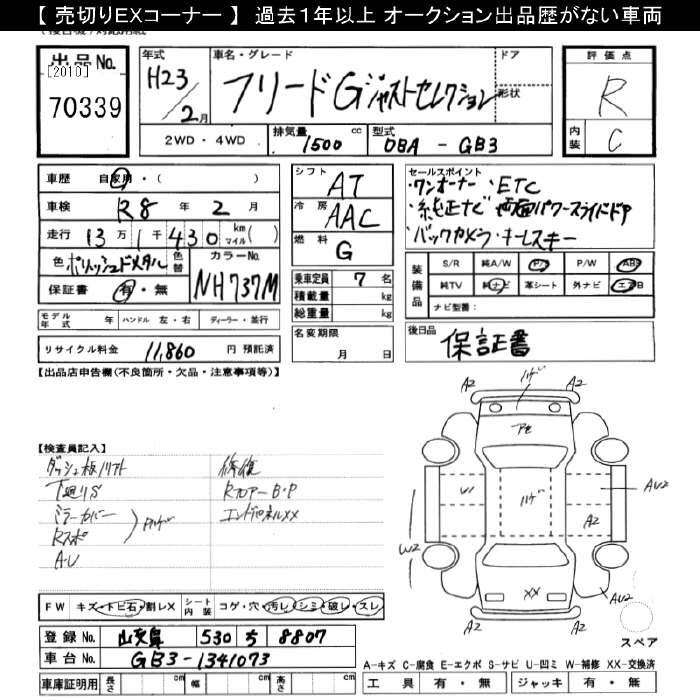 【 売切りEXコーナー 】 過去1年以上 オークション出品歴がない車両
出品No.
[2010]
70339
年式
H23/2月
車名・グレード
フリードGジャストセレクション
ドア
形状
2WD・4WD
排気量
1500 cc
型式
DBA - GB3
評価点
R
内装
C
車歴 自家用・( )
車検 R8年 2月
走行 13万1千430 km マイル( )
色 ポリッシュドメタル 色替
カラーNo. NH737M
保証書 有・無
モデル年式 年 ハンドル 左・右 ディーラー・並行
リサイクル料金 11,860 円 預託済
シフト AT
冷房 AAC
燃料 G
乗車定員 7 名
積載量 kg
総重量 kg
名変期限
月 日
セールスポイント
・ワンオーナー ・ETC
・純正ナビ ・両面パワースライドドア
・バックカメラ ・キーレスキー
装備品
S/R 純A/W P/S P/W ABS
純TV 純ナビ 革シート 外ナビ エアB
ナビ型番:
後日品
保証書
【出品店申告欄(不良箇所・欠品・注意事項等)】
【検査員記入】
ダッシュ板ハガレ
下廻りS
ミラーカバー
Rスポ
A・U
修復
RフロアーB・P
エンドパネルXX
FW キズ・トビ石・割レX
シート内装 コゲ・穴・汚レ・シミ・破レ・スレ
登録No. 530 ち 8807
車台No. GB3-1341073
車庫証明用 長さ cm 幅 cm 高さ cm
A2
A2
ハゲ
A2
A2
W1
ハゲ
AU2
W2
A2
XX
AU2
スペア
A-キズ C-腐食 E-エクボ S-サビ U-凹ミ W-補修 XX-交換済
工具 有・無 ジャッキ 有・無